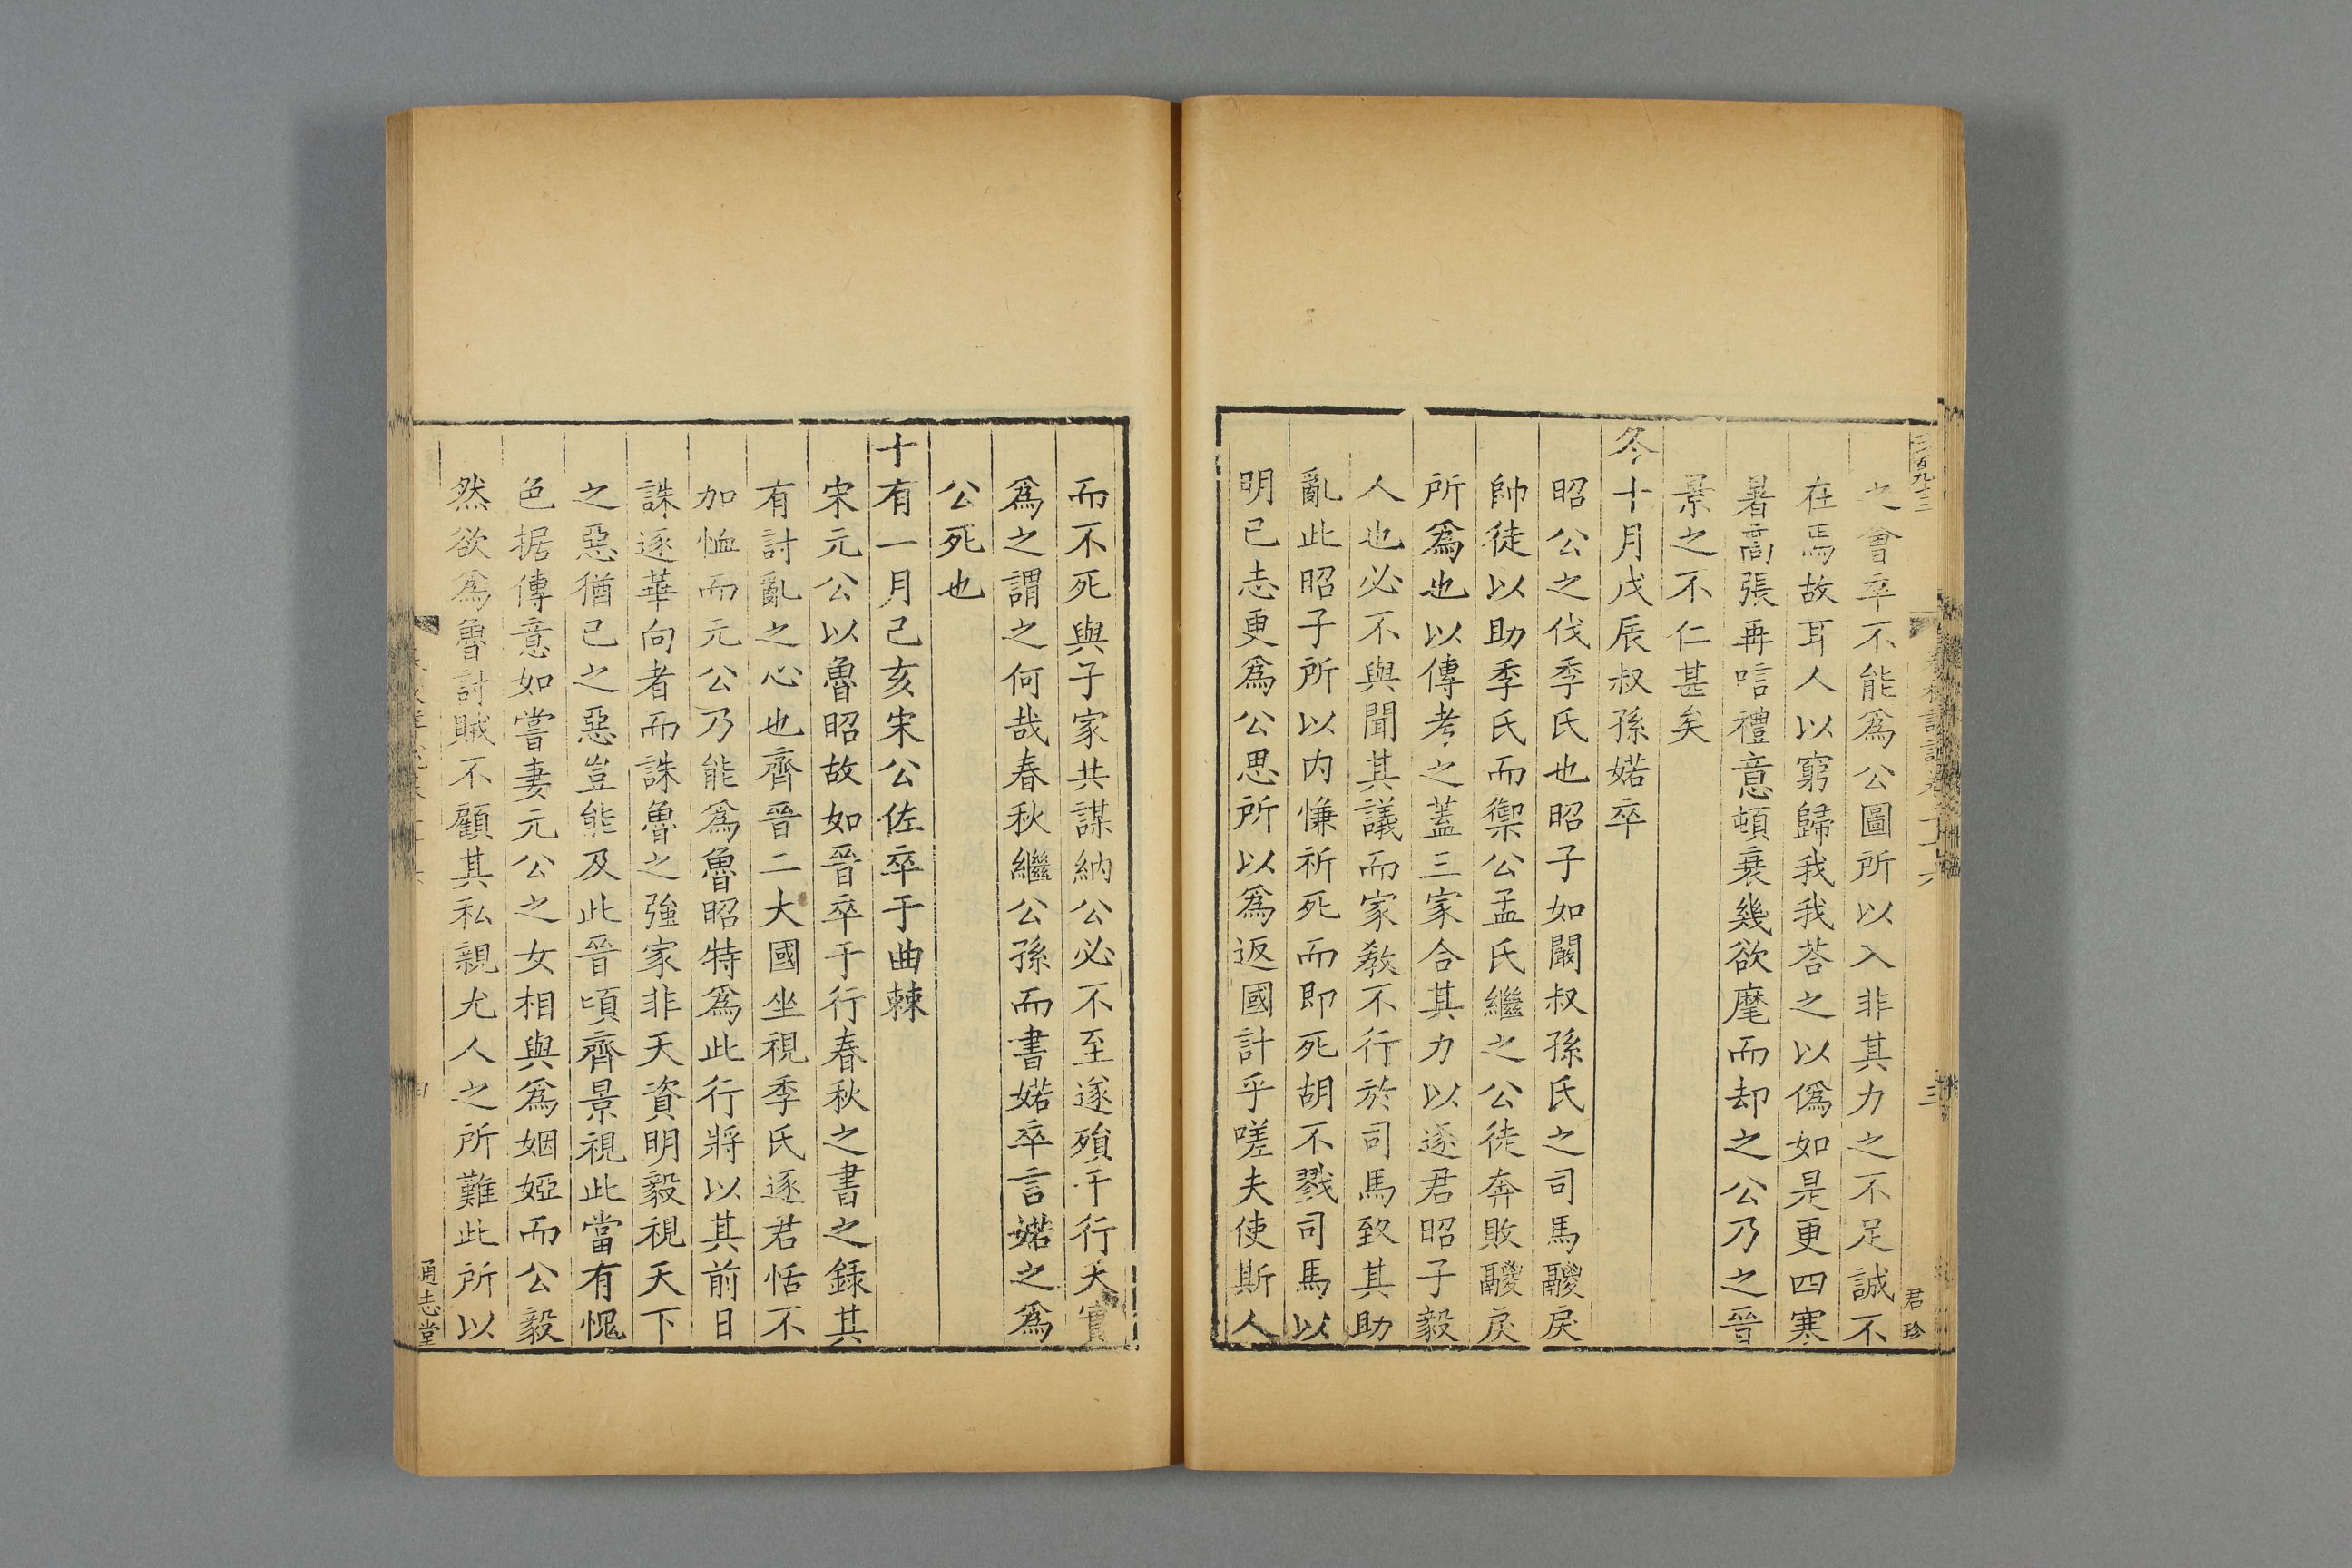 之會卒不能爲公圖所以入非其力之不足誠不
在焉故耳人以窮歸我我荅之以僞如是更四寒
暑高張再唁禮意頓衰幾欲麾而却之公乃之晉
景之不仁甚矣
冬十月戊辰叔孫婼卒
昭公之伐季氏也昭子如闞叔孫氏之司馬鬷戾
帥徒以助季氏而禦公孟氏繼之公徒奔敗鬷戾
所爲也以傳考之蓋三家合其力以逐君昭子毅
人也必不與聞其議而家敎不行於司馬致其助
亂此昭子所以内慊祈死而即死胡不戮司馬以
明己志更爲公思所以爲返國計乎嗟夫使斯人
君珍
而不死與子家共謀納公必不至遂殞于行夫實
爲之謂之何哉春秋繼公孫而書婼卒言婼之爲
公死也
十有一月己亥宋公佐卒于曲棘
宋元公以魯昭故如晉卒于行春秋之書之錄其
有討亂之心也齊晉二大國坐視季氏逐君恬不
加恤而元公乃能爲魯昭特爲此行將以其前日
誅逐華向者而誅魯之強家非天資明毅視天下
之惡猶己之惡豈能及此晉頃齊景視此當有愧
色据傳意如嘗妻元公之女相與爲姻婭而公毅
然欲爲魯討賊不顧其私親尤人之所難此所以
通志堂